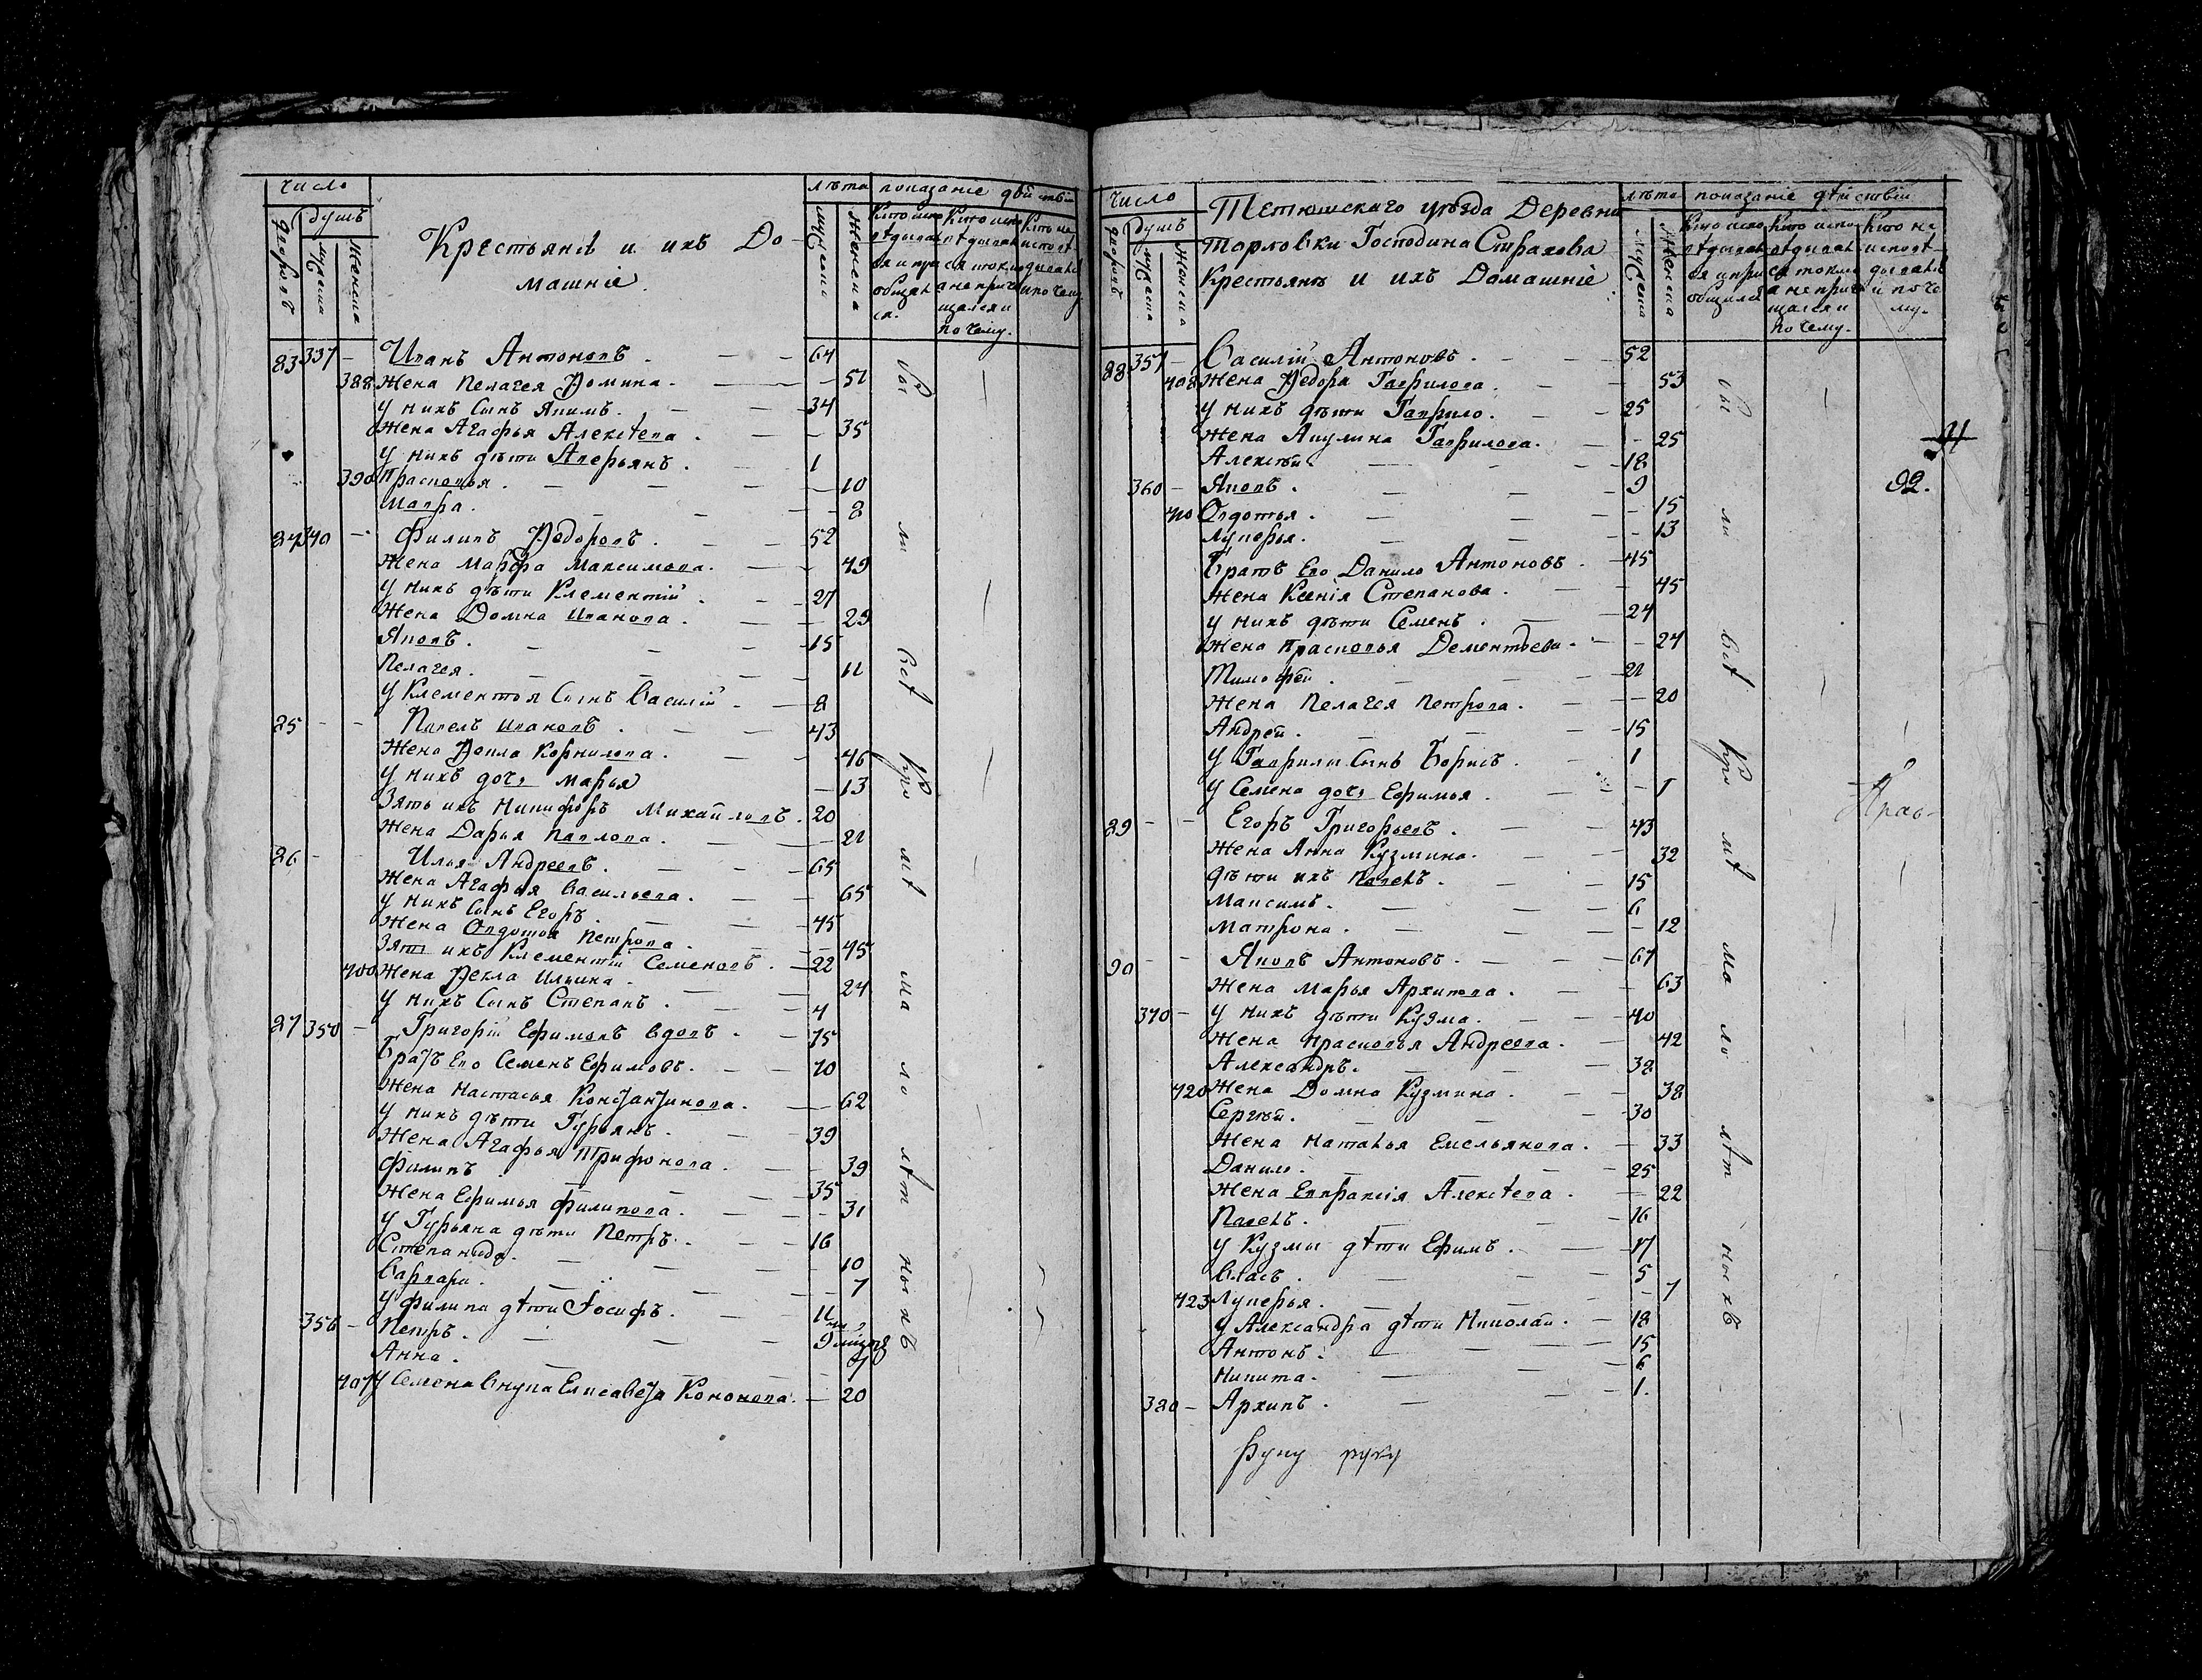 число
лѣта
показаніе дѣйствія
дворовъ
душъ
мужеска
женска
Крестьянѣ и ихъ До-
машніе.
мужеска
женска
83 337 – Иванъ Антоновъ. 64
388 Жена Пелагея Фомина. 51
У нихъ сынъ Якимъ. 34
Жена Агафья Алексѣева. 35
У нихъ дѣти Аверьянъ. 1
390 Прасковья. 10
Мавра. 8
84 340 – Филипъ Федоровъ. 52
Жена Марфа Максимова. 49
У нихъ дѣти Клементій. 27
Жена Домна Иванова. 29
Яковъ. 15
Пелагея. 11
У Клементья сынъ Василій. 8
25 – – Павелъ Ивановъ. 43
Жена Фекла Корнилова. 46
У нихъ дочь Марья 13
Зять ихъ Никифоръ Михайловъ. 20
Жена Дарья Павлова. 21
26 – – Илья Андреевъ. 65
Жена Агафья Васильева. 65
У нихъ сынъ Егоръ. 45
Жена Овдотья Петрова. 45
Зять ихъ Клементій Семеновъ. 22
400 Жена Фекла Ильина. 24
У нихъ сынъ Степанъ. 4
27 350 – Григорій Ефимовъ вдовъ. 75
Братъ Его Семенъ Ефимовъ. 70
Жена Настасья Константинова. 62
У нихъ дѣти Гурьянъ. 39
Жена Агафья Трифонова. 39
Филипъ. 35
Жена Ефимья Филипова. 31
У Гурьяна дѣти Петръ. 16
Степанида. 10
Варвара. 7
У Филипа дѣти Іосифъ. 11
356 – Петръ. 9
Анна. 4
407 У Семена внука Елисавета Кононова. 20
число
Тетюшскаго уѣзда Деревни
Торловки Господина Страхова
Крестьянѣ и ихъ Домашніе.
лѣта
показаніе дѣйствія
дворовъ
душъ
мужеска
женска
мужеска
женска
88 357 – Василій Антоновъ. 52
408 Жена Федора Гаврилова. 53
У нихъ дѣти Гаврило. 25
Жена Акулина Гаврилова. 25
91
Алексѣй. 18
360 – Яковъ. 9
92.
410 Овдотья. 15
Лукерья. 13
Братъ Его Данило Антоновъ. 45
Жена Ксенія Степанова. 45
У нихъ дѣти Семенъ. 24
Жена Прасковья Дементьева. 24
Тимофей. 21
Жена Пелагея Петрова. 20
Андрей. 15
У Гаврилы сынъ Борисъ. 1
У Семена дочь Ефимья. 1
89 – – Егоръ Григорьевъ. 43
Жена Анна Кузмина. 32
Дѣти ихъ Павелъ. 15
Максимъ. 6
Матрона. 12
90 – – Яковъ Антоновъ. 67
Жена Марья Архипова. 63
370 – У нихъ дѣти Кузма. 40
Жена Прасковья Андреева. 42
Александръ. 38
420 Жена Домна Кузмина. 38
Сергѣй. 30
Жена Наталья Емельянова. 33
Данило. 25
Жена Евпраксія Алексѣева. 22
Павелъ. 16
У Кузмы дѣти Ефимъ. 17
Власъ. 5
423 Лукерья. 7
У Александра дѣти Николай. 18
Антонъ. 15
Никита. 6
380 – Архипъ. 1.
руку
вы ли всѣ кро мѣ ма ло лѣт ныхъ
вы ли всѣ кро мѣ ма ло лѣт ныхъ